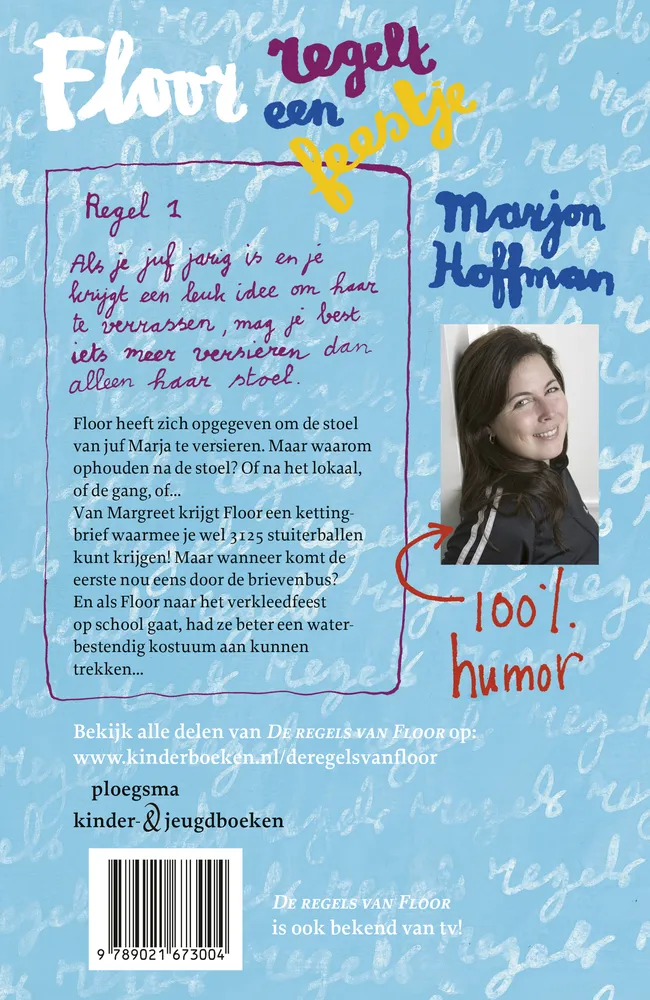 Floor regelt
een
feestje
Regel 1
Als je juf jarig is en je
krijgt een leuk idee om haar
te verrassen, mag je best
iets meer versieren dan
alleen haar stoel.
Floor heeft zich opgegeven om de stoel
van juf Marja te versieren. Maar waarom
ophouden na de stoel? Of na het lokaal,
of de gang, of...
Van Margreet krijgt Floor een ketting-
brief waarmee je wel 3125 stuiterballen
kunt krijgen! Maar wanneer komt de
eerste nou eens door de brievenbus?
En als Floor naar het verkleedfeest
op school gaat, had ze beter een water-
bestendig kostuum aan kunnen
trekken...
Marjon
Hoffman
100%
humor
Bekijk alle delen van DE REGELS VAN FLOOR op:
www.kinderboeken.nl/deregelsvanfloor
ploegsma
kinder- & jeugdboeken
9 789021 673004
DE REGELS VAN FLOOR
is ook bekend van tv!